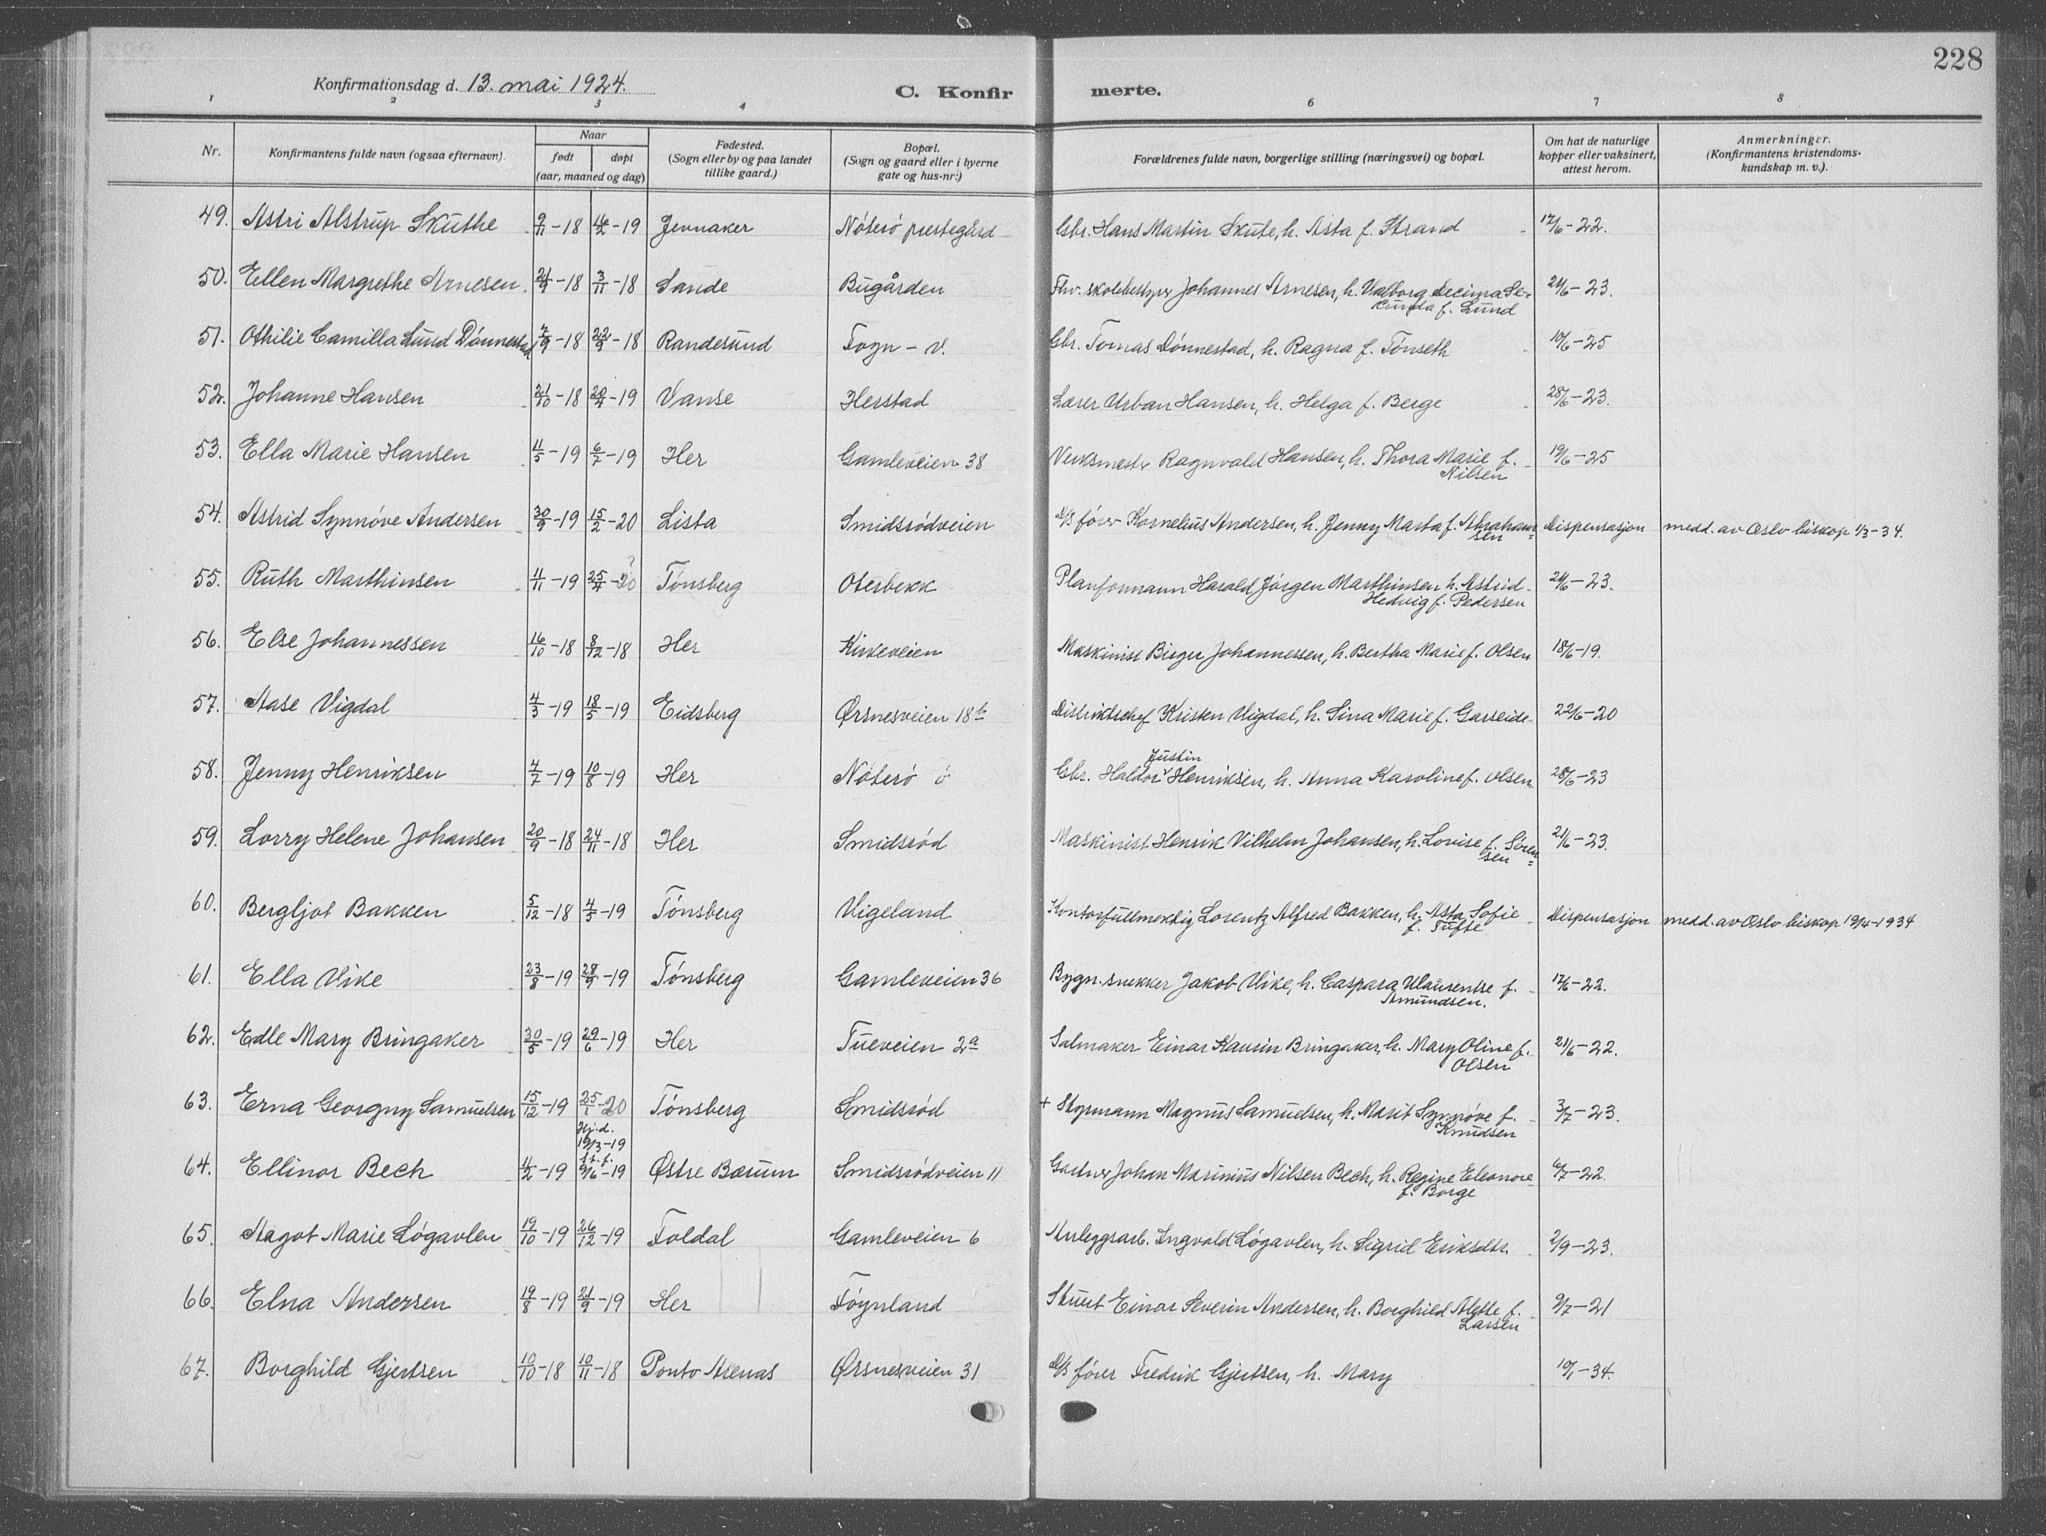 228
Konfirmationsdag d. 13. mai 1924. C. Konfir merte.
1 2 3 4 5 6 7 8
Nr. Konfirmantens fulde navn (ogsaa efternavn). Naar født døpt (aar, maaned og dag) Fødested. (Sogn eller by og paa landet tillike gaard.) Bopæl. (Sogn og gaard eller i byerne gate og hus-nr.) Forældrenes fulde navn, borgerlige stilling (næringsvei) og bopæl. Om hat de naturlige kopper eller vaksinert, attest herom. Anmerkninger. (Konfirmantens kristendoms-kundskap m. v.).
49. Astri Alstrup Skuthe 9/11-18 16/2-19 Jevnaker Nøterø prestegård Gbr. Hans Martin Skute, h. Asta f. Strand 17/6-22.
50. Ellen Margrethe Arnesen 21/9-18 3/11-18 Sande Bugården Fhv. skolebestyrer Johannes Arnesen, h. Valborg Decima Se-
kunda f. Lund 24/6-23.
51. Othilie Camilla Lund Dønnestad 7/9-18 22/9-18 Randesund Fogn - v. Gbr. Tomas Dønnestad, h. Ragna f. Tønseth 10/6-25
52. Johanne Hansen 21/10-18 20/4-19 Vanse Herstad Lærer Urban Hansen, h. Helga f. Berge 28/6-23.
53. Ella Marie Hansen 4/5-19 6/7-19 Her Gamleveien 38 Verksmestr Ragnvald Hansen, h. Thora Marie f.
Nilsen 19/6-25
54. Astrid Synnøve Andersen 30/9-19 15/2-20 Lista Smidsrødveien D/S fører Kornelius Andersen, h. Jenny Marta f. Abraham-
sen Dispensasjon medd. av Oslo biskop 1/3-34.
55. Ruth Marthinsen 4/11-19 25/4-20 ? Tønsberg Oterbekk Planformann Harald Jørgen Marthinsen h. Astrid
Hedvig f. Pedersen 24/6-23.
56. Else Johannessen 16/10-18 8/12-18 Her Kirkeveien Maskinist Birger Johannessen, h. Bertha Marie f. Olsen 18/6-19.
57. Aase Vigdal 4/3-19 18/5-19 Eidsberg Ørsnesveien 18b Distriktschef Kristen Vigdal, h. Sina Marie f. Garseide 22/6-20
58. Jenny Henriksen 4/7-19 10/8-19 Her Nøterø ø Gbr. Haldor Justin Henriksen, h. Anna Karoline f. Olsen 28/6-23
59. Lorry Helene Johansen 20/9-18 24/11-18 Her Smidsrød Maskinist Henrik Vilhelm Johansen, h. Lovise f. Søren-
sen 21/6-23.
60. Bergljot Bakken 5/12-18 4/5-19 Tønsberg Vigeland Kontorfullmektig Lorentz Alfred Bakken, h. Asta Sofie
f. Tufte Dispensasjon medd. av Oslo biskop 19/4-1934
61. Ella Vike 23/8-19 28/9-19 Tønsberg Gamleveien 36 Bygn. snekker Jakob Vike, h. Caspara Ulaurentse f.
Amundsen. 17/6-22.
62. Edle Mary Bringaker 30/5-19 29/6-19 Her Tueveien 2a Salmaker Einar Kaurin Bringaker, h. Mary Oline f.
Olsen 21/6-22.
63. Erna Georgny Samuelsen 15/12-19 25/1-20 Tønsberg Smidsrød + Styrmann Magnus Samuelsen, h. Marit Synnøve f.
Knudsen 3/7-23.
64. Ellinor Bech 4/2-19 Hj.d. 19/3-19 st.f. 9/6-19 Østre Bærum Smidsrødveien 11 Gartner Johan Marinius Nilsen Bech, h. Regine Eleonore
f. Borge 6/7-22.
65. Aagot Marie Løgavlen 19/10-19 26/12-19 Foldal Gamleveien 6 Anleggsarb. Ingvald Løgavlen, h. Sigrid Eriksdtr. 2/9-23.
66. Elna Andersen 19/8-19 21/9-19 Her Føynland Skuut Einar Severin Andersen, h. Borghild Alette f.
Larsen 9/7-21
67. Borghild Gjertsen 10/10-18 10/11-18 Ponto Arenas Ørsnesveien 31 D/S fører Fredrik Gjertsen, h. Mary 10/1-34.